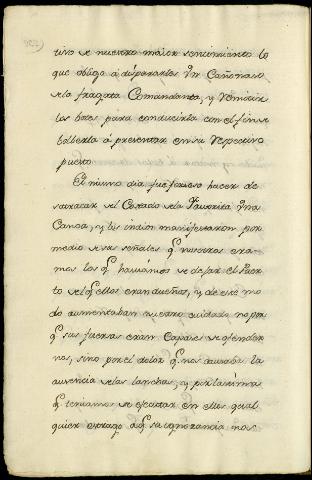 tivo de nuestro maior sentimiento lo
que obligo á dispararles un Cañonaso
dela fragata Comandanta, y remitir
los botes para conducirla con el fin de
bolberla á presentar en su respectivo
puesto
El mismo dia fue forsoso hacer de
satracar del Costado dela Favorita una
Canoa, y los indios manifestaron por
medio de sus señales q. nosotros era-
mos los q. haviamos de dejar el Puer
to de q. ellos eran dueños, y de este mo
do aumentaban nuestro cuidado no por
q. sus fuersas eran Capases de ofender
nos, sino por el dolor q. nos causaba la
ausencia delas lanchas, y p.r la lastima
q. teniamos de ejecutar en ellos qual
quier estrago á q. su ignorancia nos